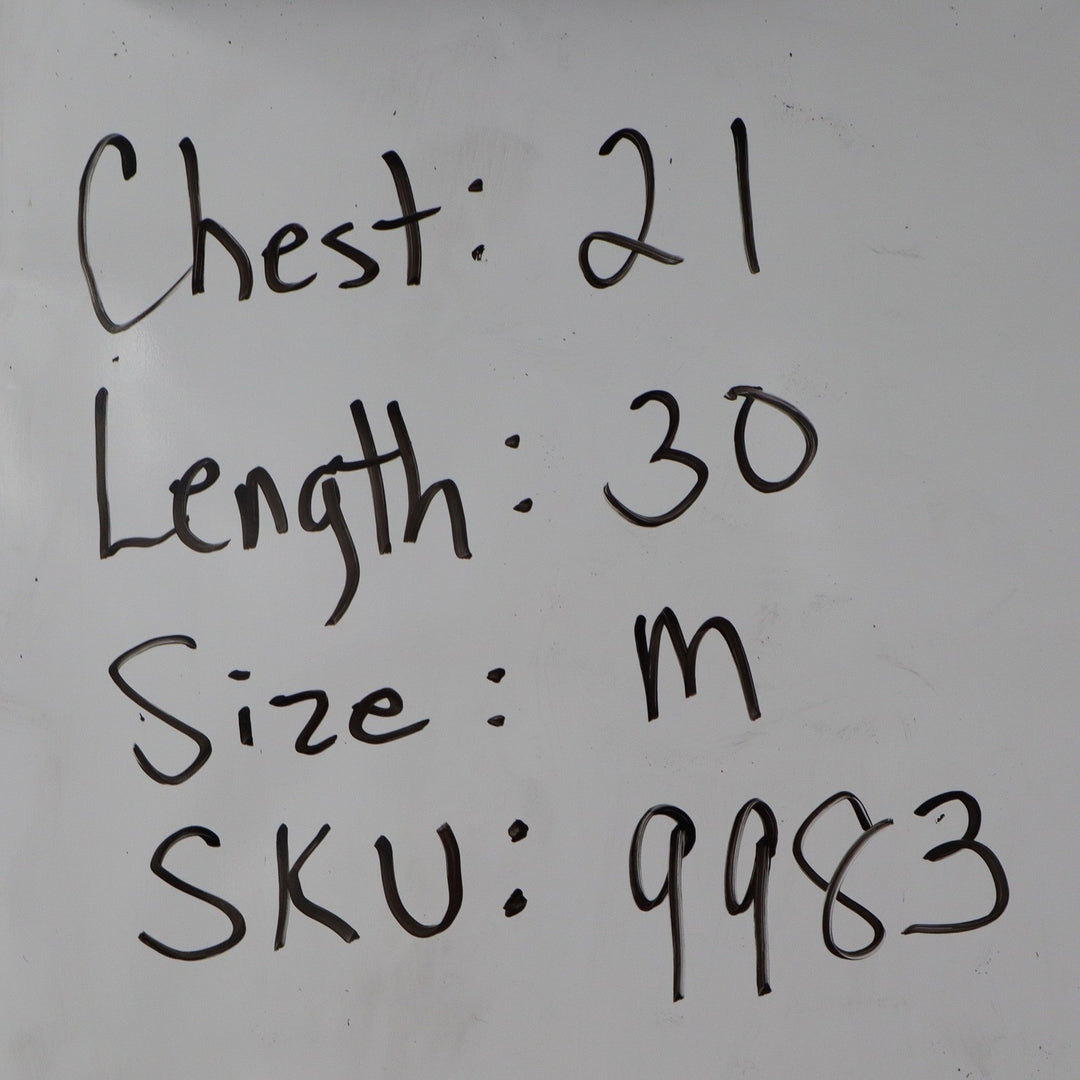 Chest: 21
Length: 30
Size: M
SKU: 9983